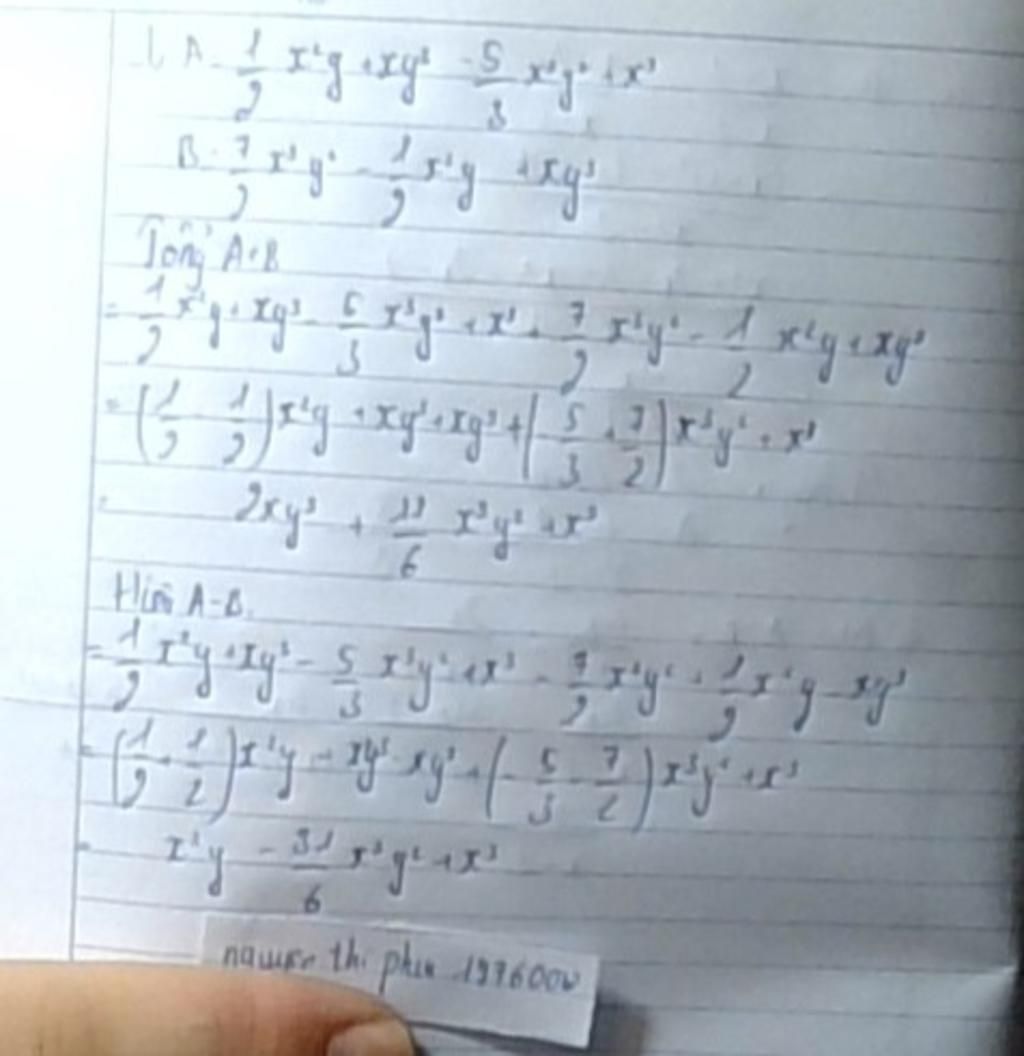 1 A = 1/2 x²y + xy³ - 5/3 x³y² + x³
B = 7/2 x³y² - 1/2 x²y + xy³
Tổng A+B
= 1/2 x²y + xy³ - 5/3 x³y² + x³ + 7/2 x³y² - 1/2 x²y + xy³
= (1/2 - 1/2) x²y + xy³ + xy³ + (-5/3 + 7/2) x³y² + x³
= 2xy³ + 11/6 x³y² + x³
A-B
= 1/2 x²y + xy³ - 5/3 x³y² + x³ - 7/2 x³y² + 1/2 x²y - xy³
= (1/2 + 1/2) x²y + xy³ - xy³ + (-5/3 - 7/2) x³y² + x³
= x²y - 31/6 x³y² + x³
thi